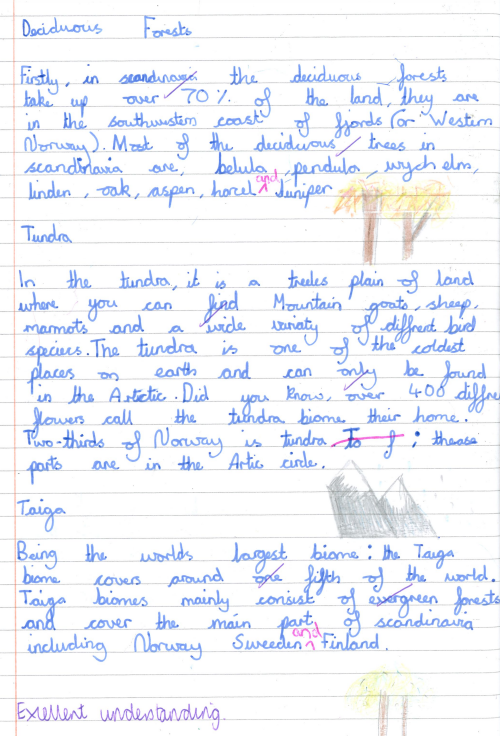 Deciduous Forests
Firstly, in scandinavia the deciduous forests
take up over 70% of the land, they are
in the southwestern coast of fjords (or Western
Norway). Most of the deciduous trees in
scandinavia are, betula, pendula, wych elm,
linden, oak, aspen, harcel and Juniper
Tundra
In the tundra, it is a treeles plain of land
where you can find Mountain goats, sheep,
marmots and a wide variaty of diffrent bird
speciers. The tundra is one of the coldest
places on earth and can only be found
in the Artictic. Did you know, over 400 diffre
flowers call the tundra biome their home.
Two-thirds of Norway is tundra To f ; thease
parts are in the Artic circle.
Taiga
Being the worlds largest biome: the Taiga
biome covers around one fifth of the world.
Taiga biomes mainly consist of evergreen forests
and cover the main part of scandinavia
including Norway Sweeden and Finland.
Exellent understanding.